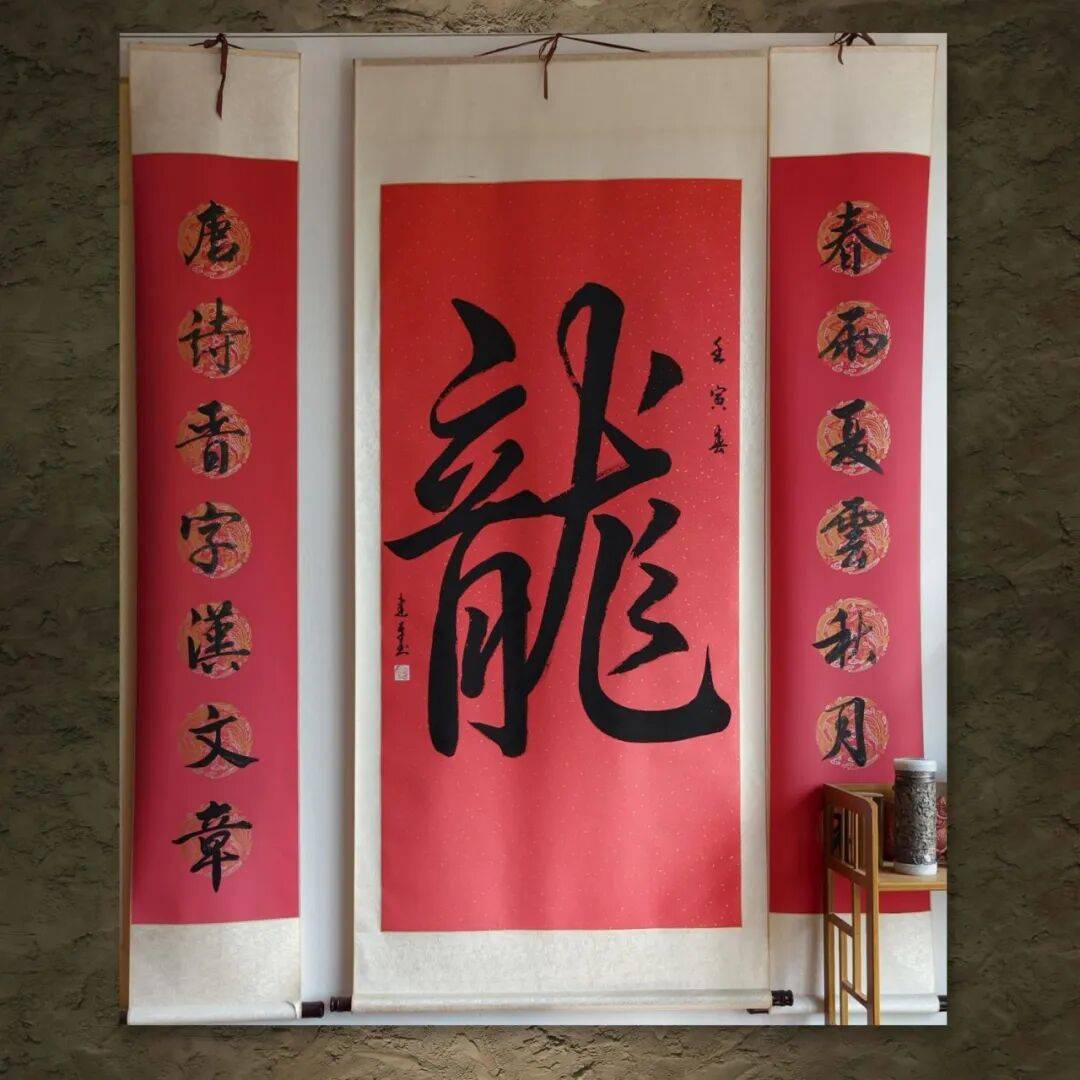 春雨夏雲秋月
壬寅春
龍
唐詩晋字漢文章